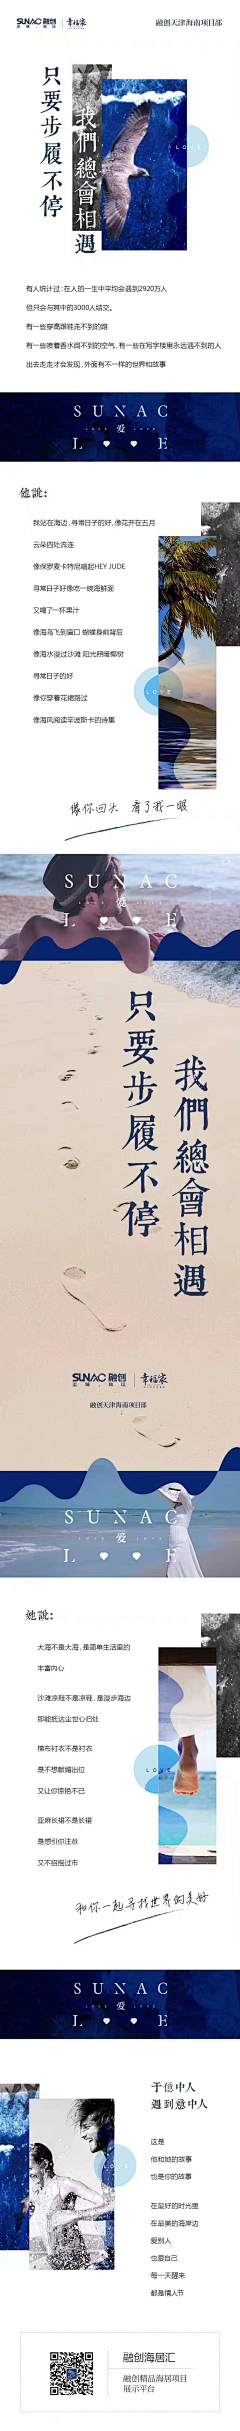 SUNAC 融创
至臻·致远
幸福家
融创天津海南项目部
只要步履不停
我們總會相遇
LOVE
有人统计过:在人的一生中平均会遇到2920万人
但只会与其中的3000人结交。
有一些穿高跟鞋走不到的路
有一些喷着香水闻不到的空气,有一些在写字楼里永远遇不到的人
出去走走才会发现,外面有不一样的世界和故事
SUNAC
LOVE 爱 LOVE
L E
他說:
我站在海边,寻常日子的好,像花开在五月
云朵四处流连
像保罗麦卡特尼唱起HEY JUDE
寻常日子好像吃一碗海鲜面
又喝了一杯果汁
像海鸟飞到窗口 蝴蝶身前背后
像海水漫过沙滩 阳光照暖椰树
寻常日子的好
像你穿着花裙路过
像海风阅读辛波斯卡的诗集
LOVE
像你回头 看了我一眼
SUNAC
LOVE 爱 LOVE
L E
只要步履不停
我們總會相遇
SUNAC 融创
至臻·致远
幸福家
融创天津海南项目部
SUNAC
LOVE 爱 LOVE
L E
她說:
大海不是大海,是简单生活里的
丰富内心
沙滩凉鞋不是凉鞋,是漫步海边
即能抵达尘世心归处
棉布衬衣不是衬衣
是不想颠媚出位
又让你惊艳不已
亚麻长裙不是长裙
是想引你注意
又不招摇过市
LOVE
和你一起寻找世界的美好
SUNAC
LOVE 爱 LOVE
L E
于億中人
遇到意中人
LOVE
这是
他和她的故事
也是你的故事
在最好的时光里
在最美的海岸边
爱别人
也爱自己
每一天醒来
都是情人节
融创海居汇
融创精品海居项目
展示平台